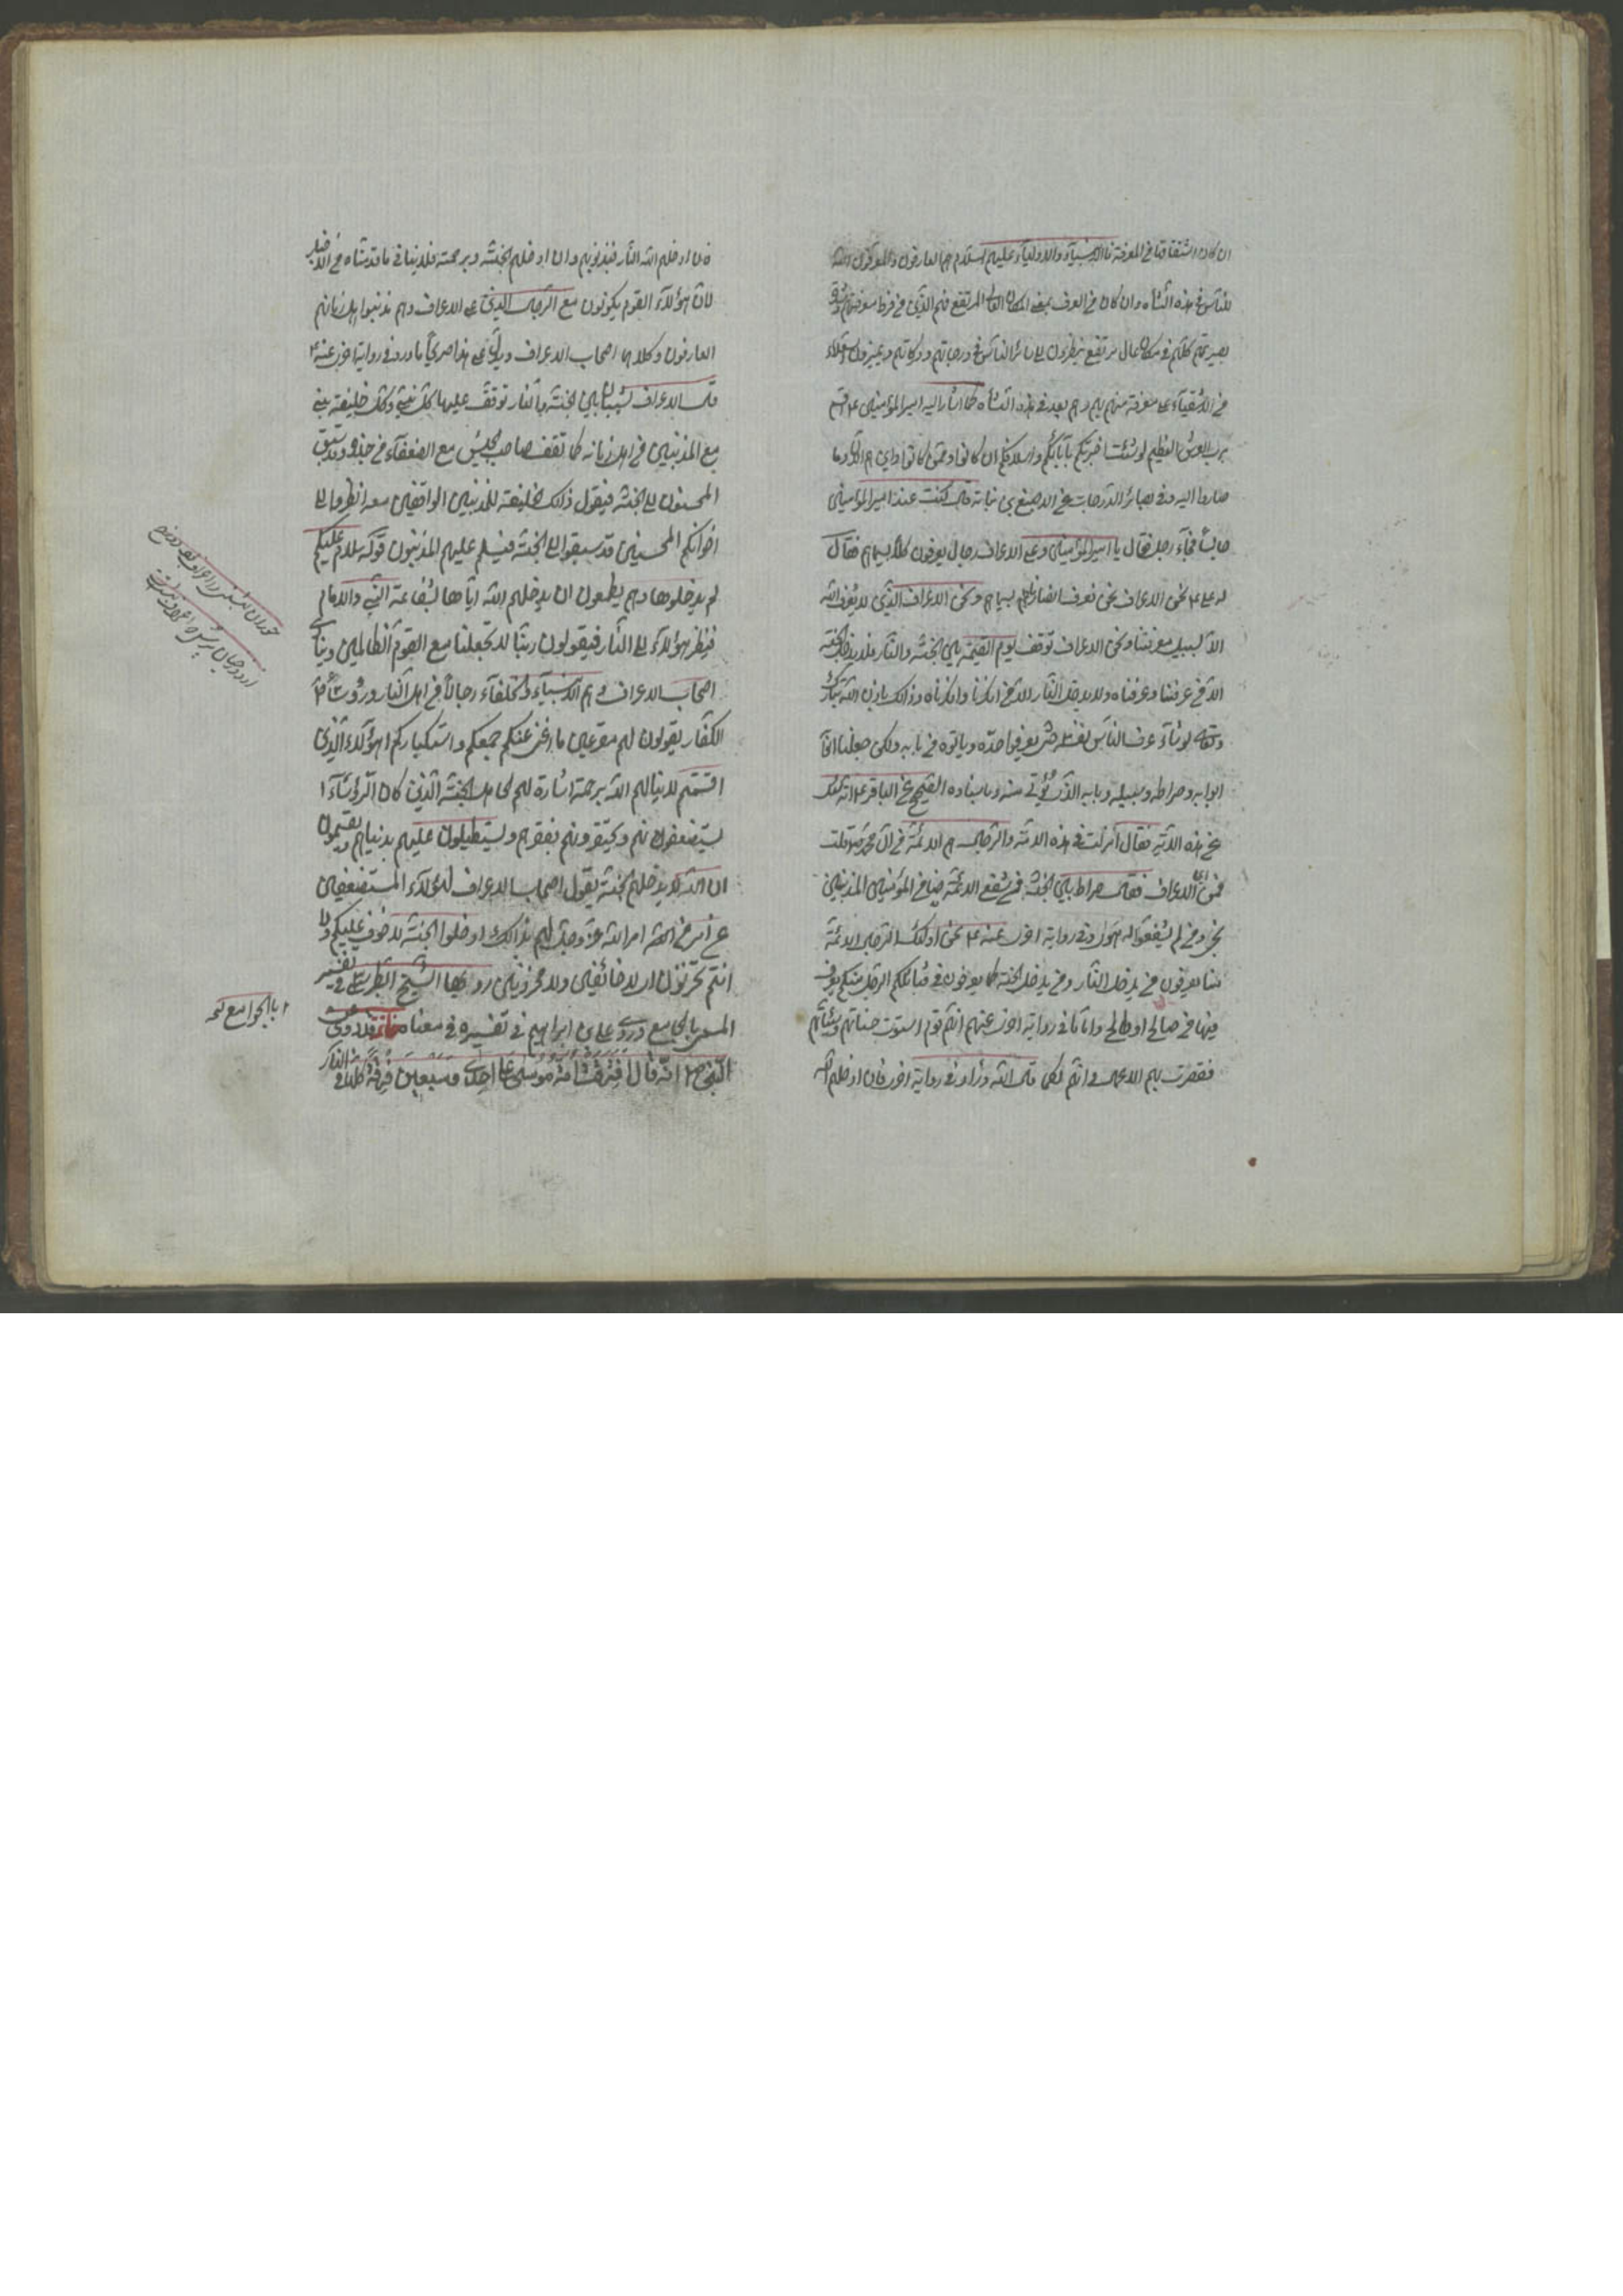 ان كان اشتقاقها من المعرفة فالانبياء والاولياء عليهم السلام هم العارفون والمعرفون الله
للناس في هذه النشاه وان كان من العرف بمعنى المكان العالي المرتفع فهم الذين من فرط معرفتهم وشدة
بصيرتهم كانهم في مكان عال مرتفع ينظرون الى سائر الناس في درجاتهم ودركاتهم ويميزون السعداء
من الاشقياء على معرفة منهم بهم وهم بعد في هذه النشاه كما اشار اليه امير المؤمنين ع
برب العرش العظيم لو شئت اخبرتكم بآبائكم واسلافكم اين كانوا وممن كانوا واين هم الآن وما
صاروا اليه وفي بصائر الدرجات عن الاصبغ بن نباته قال كنت عند امير المؤمنين
جالسا فجاء رجل فقال يا امير المؤمنين وعلى الاعراف رجال يعرفون كلا بسيماهم فقال
له علي ع نحن الاعراف نحن نعرف انصارنا بسيماهم ونحن الاعراف الذين لا يعرف الله
الا بسبيل معرفتنا ونحن الاعراف نوقف يوم القيمة بين الجنة والنار فلا يدخل الجنة
الا من عرفنا وعرفناه ولا يدخل النار الا من انكرنا وانكرناه وذلك بان الله تبارك
وتعالى لو شاء عرف الناس نفسه حتى يعرفوا حده وياتوه من بابه ولكن جعلنا
ابوابه وصراطه وسبيله وبابه الذي يؤتى منه وباسناده الصحيح عن الباقر ع انه سئل
عن هذه الآية فقال انزلت في هذه الامة والرجال هم الائمة من آل محمد قلت
فما الاعراف فقال صراط بين الجنة والنار فمن شفع الائمة منا من المؤمنين المذنبين
نجى ومن لم يشفعوا له هوى وفي رواية اخرى عنه ع نحن اولئك الرجال الائمة
منا يعرفون من يدخل النار ومن يدخل الجنة كما يعرفون في قبائلكم الرجل منكم يعرف
فيها من صالح او طالح واما ما في رواية اخرى عنهم انهم قوم استوت حسناتهم وسيئاتهم
فقصرت بهم الاعمال وانهم لكما قال الله وزاد في رواية اخرى فان ادخلهم الله
فان ادخلهم الله النار فبذنوبهم وان ادخلهم الجنة فبرحمته فلا ينافي ما قدمناه من الاخبار
لان هؤلاء القوم يكونون مع الرجال الذين على الاعراف وهم مذنبوا اهل زمانهم
العارفون وكلاهما اصحاب الاعراف ويدل على هذا صريحا ما ورد في رواية اخرى عنه ع
قال الاعراف كثبان بين الجنة والنار توقف عليها كل نبي وكل خليفة نبي
مع المذنبين من اهل زمانه كما تقف صاحب الجيش مع الضعفاء من جنده وقد سبق
المحسنون الى الجنة فيقول ذلك الخليفة للمذنبين الواقفين معه انظروا الى
اخوانكم المحسنين قد سبقوا الى الجنة فيسلم عليهم المذنبون قوله سلام عليكم
لم يدخلوها وهم يطمعون ان يدخلهم الله اياها بشفاعة النبي والامام
فينظر هؤلاء الى النار فيقولون ربنا لا تجعلنا مع القوم الظالمين وينادي
اصحاب الاعراف وهم الانبياء والخلفاء رجالا من اهل النار ورؤساء
الكفار يقولون لهم مقرعين ما اغنى عنكم جمعكم واستكباركم اهؤلاء الذين
اقسمتم لا ينالهم الله برحمة اشارة لهم الى اهل الجنة الذين كان الرؤساء
يستضعفونهم ويحتقرونهم بفقرهم ويستطيلون عليهم بدنياهم ويقسمون
ان الله لا يدخلهم الجنة يقول اصحاب الاعراف لهؤلاء المستضعفين
عن امر من الله امر الله عز وجل لهم بذلك ادخلوا الجنة لا خوف عليكم ولا
انتم تحزنون اى لا خائفين ولا محزونين رواها الشيخ الطبرسي في تفسير
المسمى بالجامع وروى علي بن ابراهيم في تفسيره في معناه
النبي ص انه قال افترقت امة موسى على احدى وسبعين فرقة كلها في النار
حوران بهشتى را دوزخ بود اعراف
از دوزخيان پرس كه اعراف بهشتست
بالجوامع نسخه